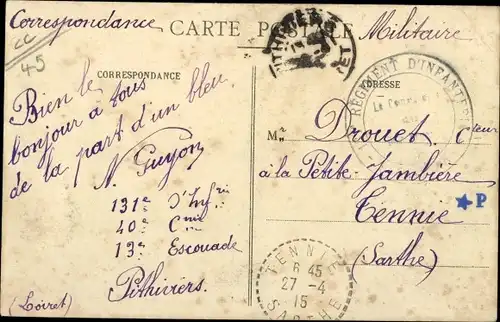 Correspondance
CARTE POSTALE
Militaire
45
CORRESPONDANCE
ADRESSE
RÉGIMENT D'INFANTERIE
Bien le
bonjour a tous
de la part d'un bleu
N. Guyon
131e d'Infrie
40e Cnie
13e Escouade
Pithiviers
(Loiret)
Mr Drouet Cteur
à la Petite-Jambière
Tennie
(Sarthe)
P
TENNIE
8 45
27-4
15
SARTHE